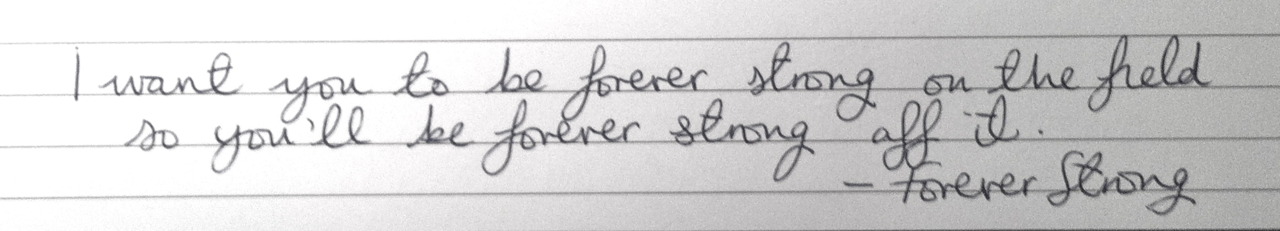 I want you to be forever strong on the field
so you'll be forever strong off it.
- Forever Strong